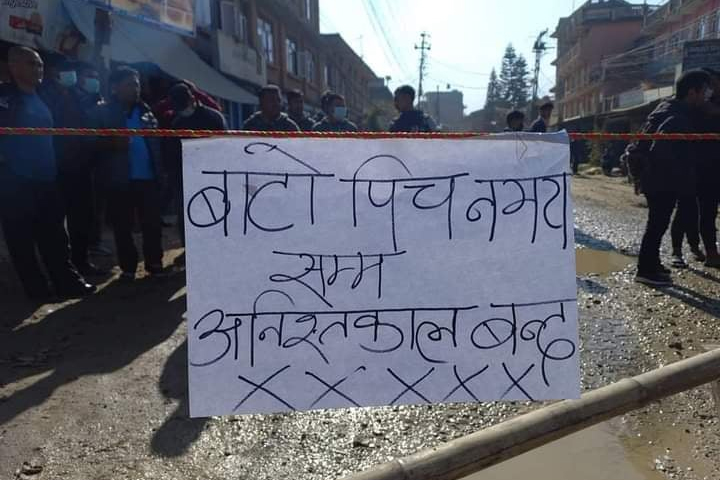 बाटो पिच नभए
सम्म
अनिश्तकाल बन्द
X X X X X